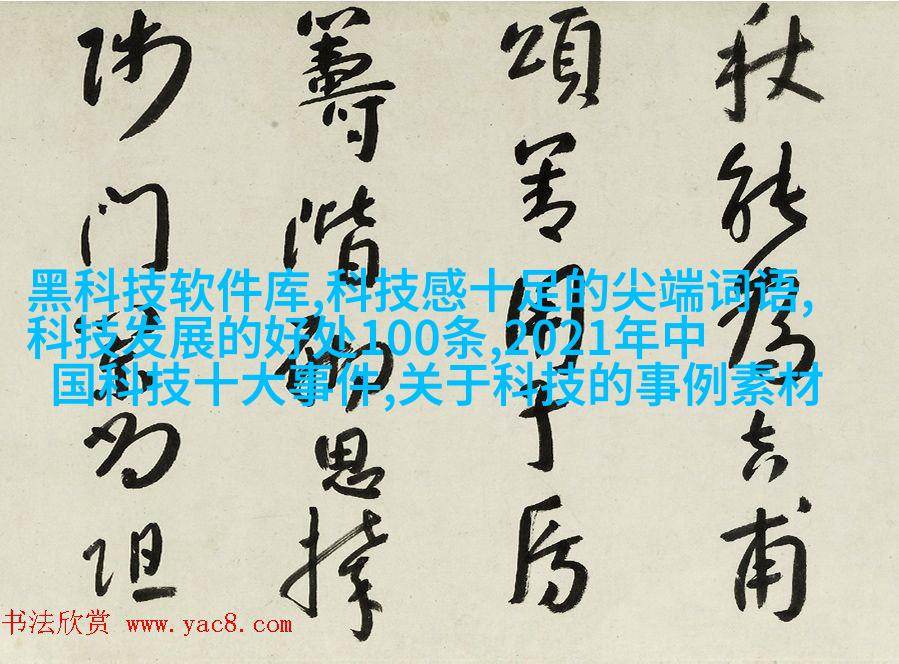 能為吉甫
頌善于房
籌階思
門為阻
黑科技软件库,科技感十足的尖端词语,
科技发展的好处100条,2021年中
国科技十大事件,关于科技的事例素材
书法欣赏 www.yac8.com